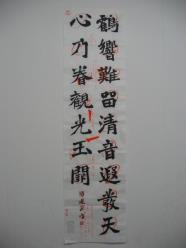 鶴響難留清音遐發天
心乃眷觀光玉闕